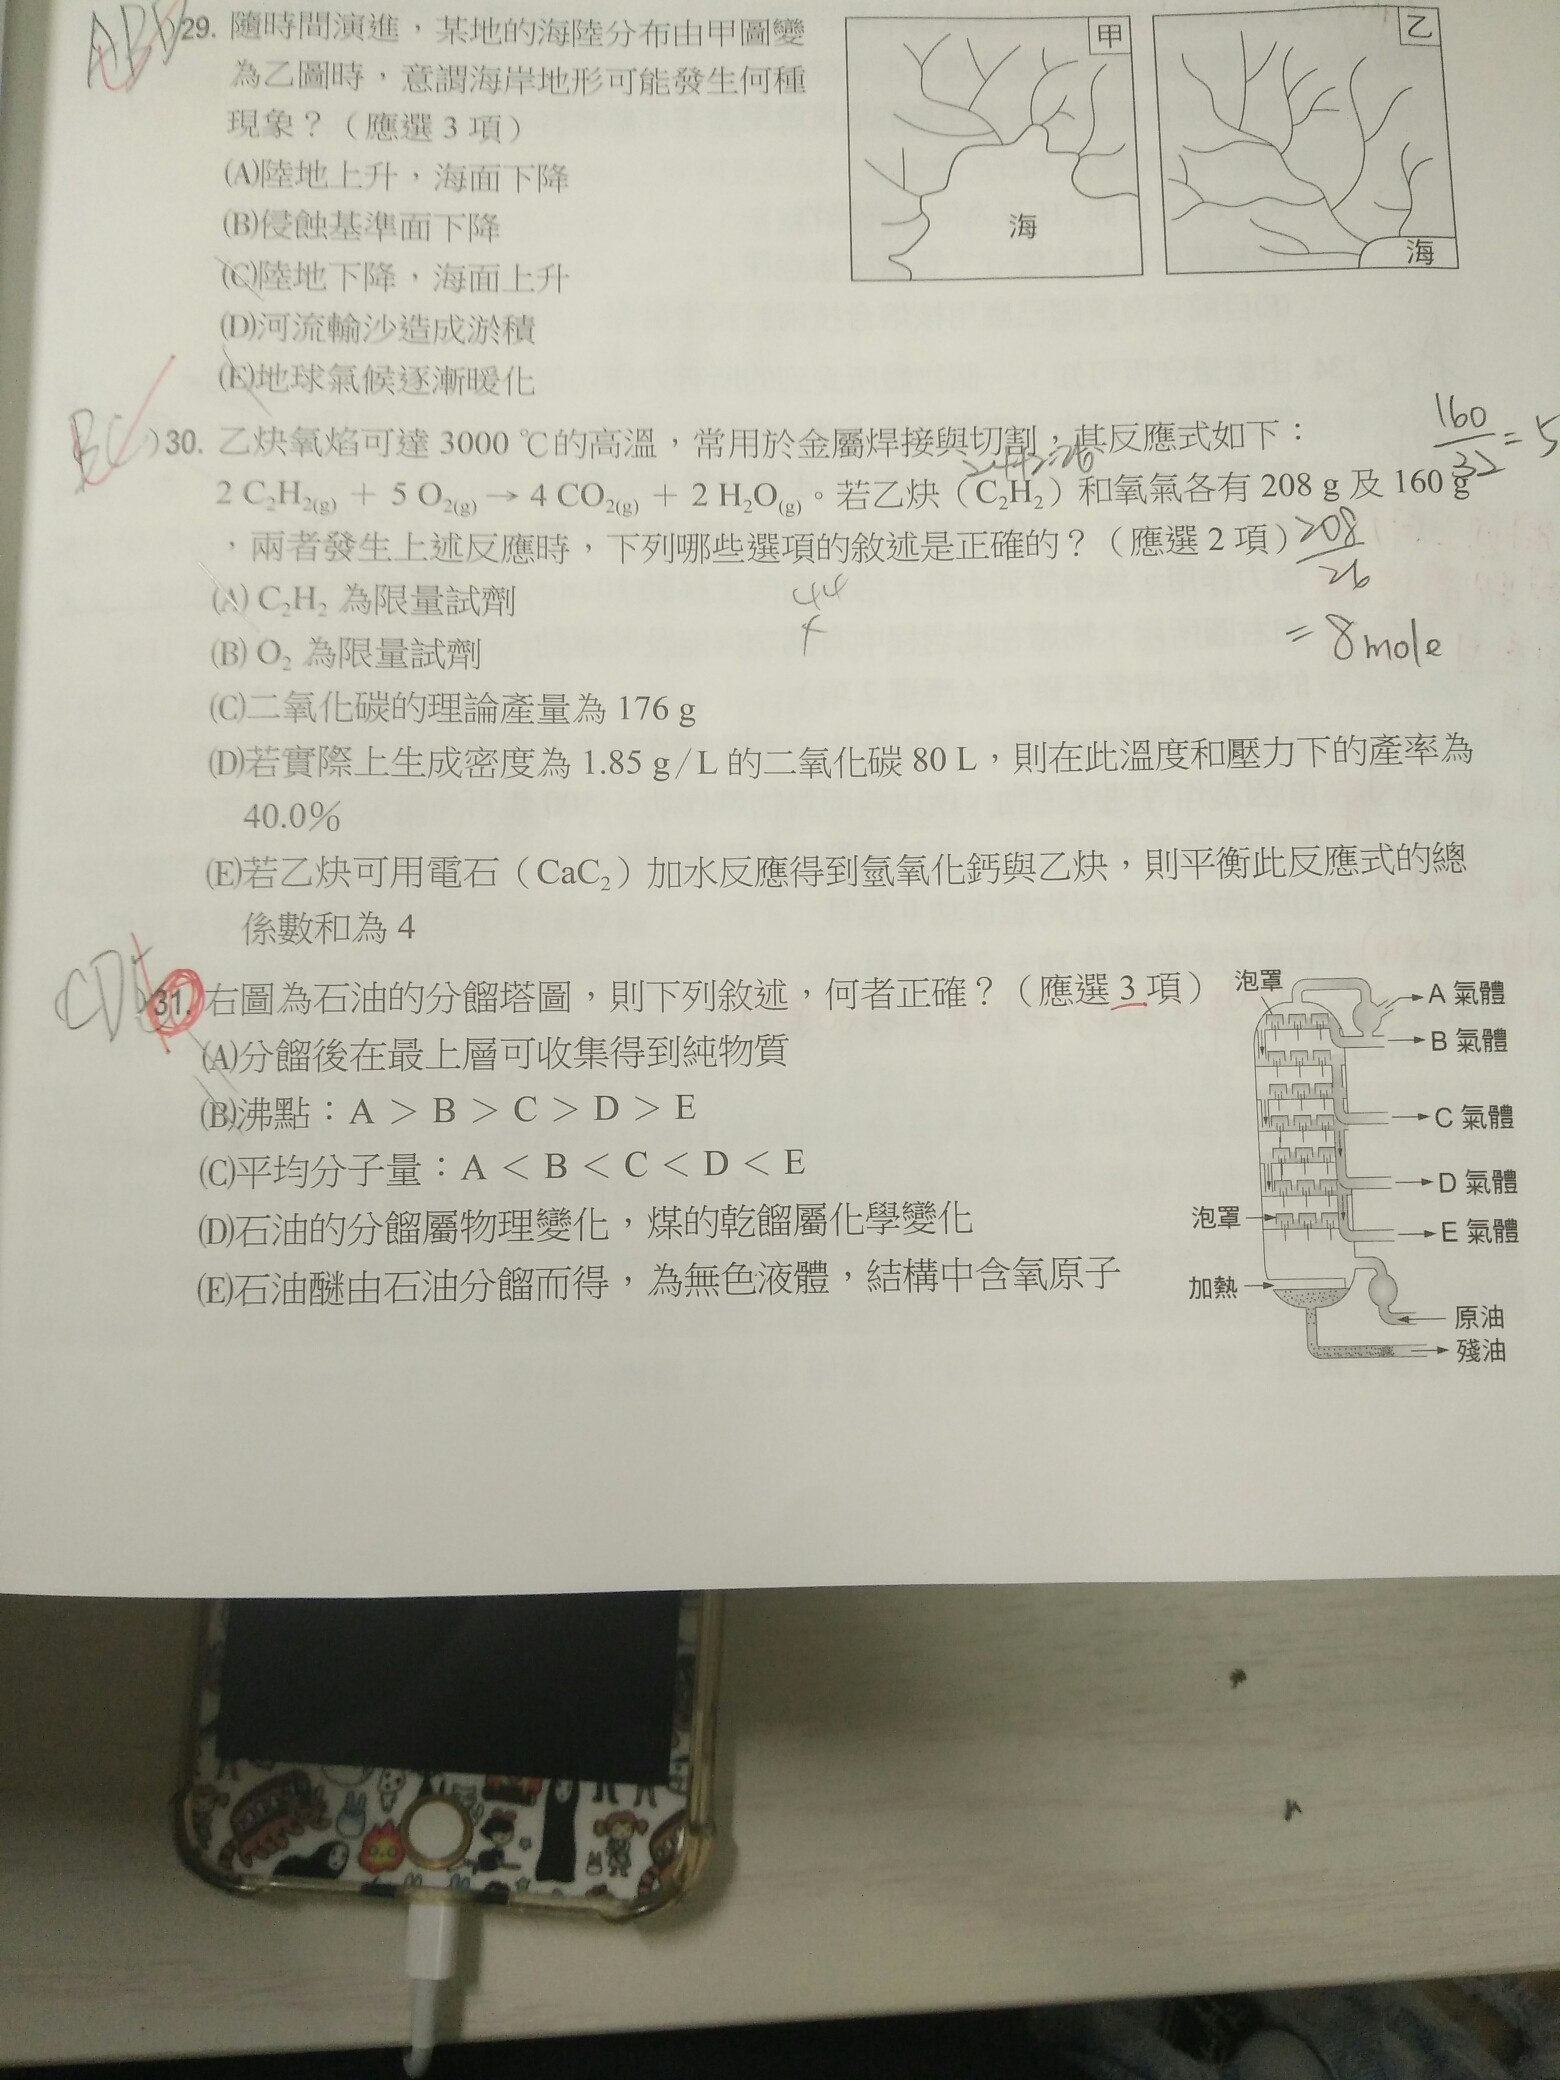 ABD
29. 隨時間演進，某地的海陸分布由甲圖變
為乙圖時，意謂海岸地形可能發生何種
現象？（應選 3 項）
(A)陸地上升，海面下降
(B)侵蝕基準面下降
(C)陸地下降，海面上升
(D)河流輸沙造成淤積
(E)地球氣候逐漸暖化
甲
海
乙
海
BC
)30. 乙炔氧焰可達 3000 ℃的高溫，常用於金屬焊接與切割，其反應式如下：
2 C₂H₂(g) + 5 O₂(g) → 4 CO₂(g) + 2 H₂O(g)。若乙炔（C₂H₂）和氧氣各有 208 g 及 160 g
，兩者發生上述反應時，下列哪些選項的敘述是正確的？（應選 2 項）
(A) C₂H₂ 為限量試劑
(B) O₂ 為限量試劑
(C)二氧化碳的理論產量為 176 g
(D)若實際上生成密度為 1.85 g/L 的二氧化碳 80 L，則在此溫度和壓力下的產率為
40.0%
(E)若乙炔可用電石（CaC₂）加水反應得到氫氧化鈣與乙炔，則平衡此反應式的總
係數和為 4
24+2=26
160/32=5
208/26
=8mole
44
CD
31. 右圖為石油的分餾塔圖，則下列敘述，何者正確？（應選 3 項）
(A)分餾後在最上層可收集得到純物質
(B)沸點：A > B > C > D > E
(C)平均分子量：A < B < C < D < E
(D)石油的分餾屬物理變化，煤的乾餾屬化學變化
(E)石油醚由石油分餾而得，為無色液體，結構中含氧原子
泡罩
A 氣體
B 氣體
C 氣體
D 氣體
泡罩
E 氣體
加熱
原油
殘油